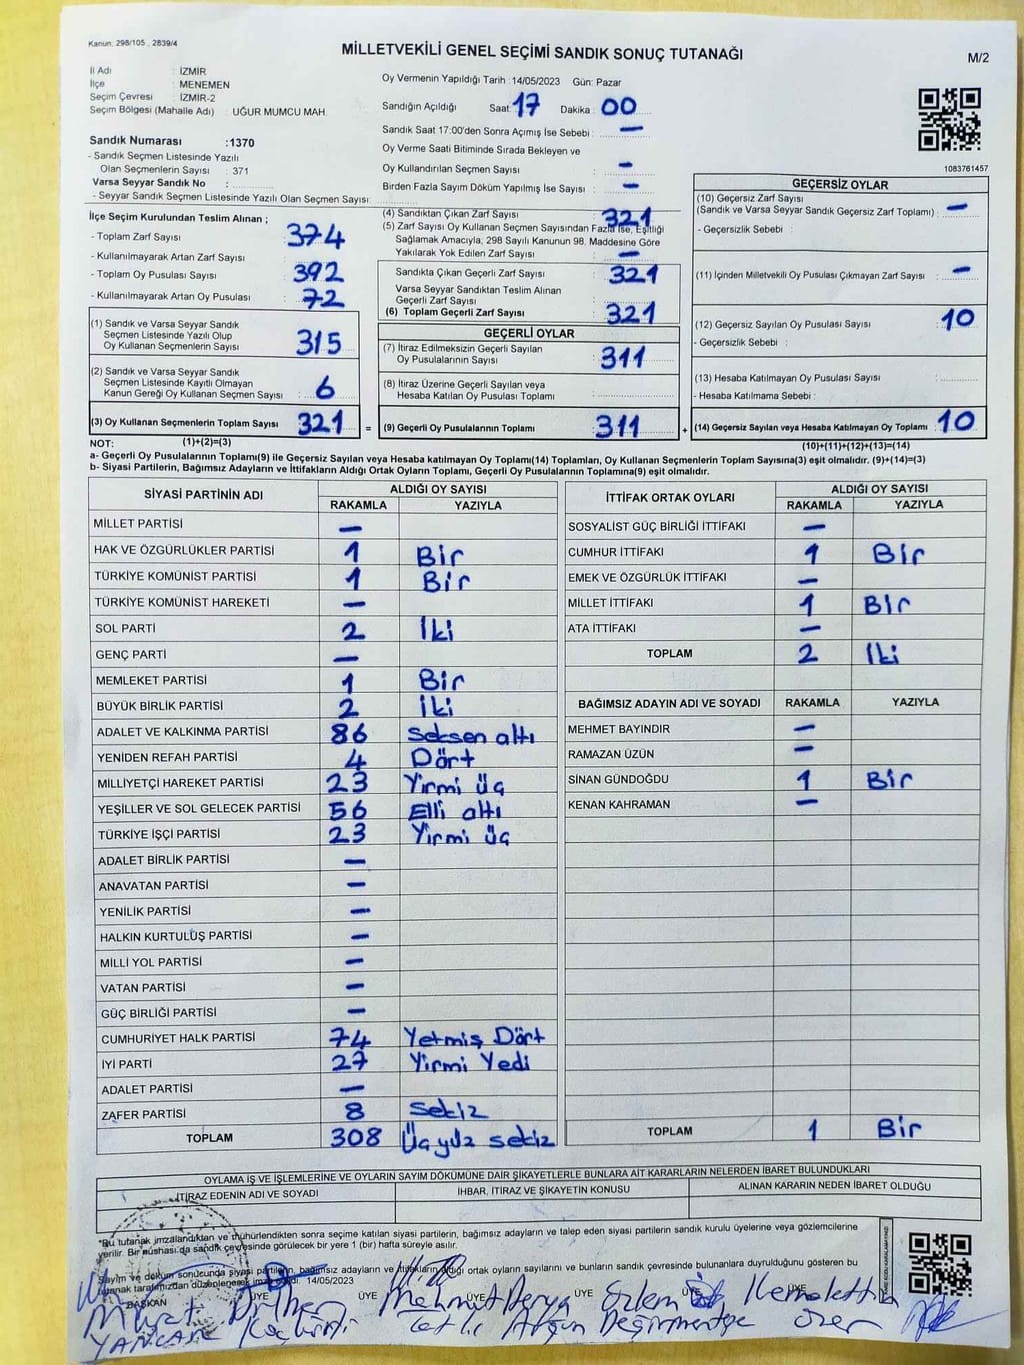 Kanun: 298/105 , 2839/4
MİLLETVEKİLİ GENEL SEÇİMİ SANDIK SONUÇ TUTANAĞI
M/2
İl Adı : İZMİR
İlçe : MENEMEN
Seçim Çevresi : İZMİR-2
Seçim Bölgesi (Mahalle Adı) : UĞUR MUMCU MAH.
Sandık Numarası :1370
- Sandık Seçmen Listesinde Yazılı
Olan Seçmenlerin Sayısı : 371
Varsa Seyyar Sandık No :
- Seyyar Sandık Seçmen Listesinde Yazılı Olan Seçmen Sayısı:
Oy Vermenin Yapıldığı Tarih :14/05/2023 Gün: Pazar
Sandığın Açıldığı Saat: 17 Dakika : 00
Sandık Saat 17:00'den Sonra Açımış İse Sebebi : —
Oy Verme Saati Bitiminde Sırada Bekleyen ve
Oy Kullandırılan Seçmen Sayısı : —
Birden Fazla Sayım Döküm Yapılmış İse Sayısı : —
1083761457
İlçe Seçim Kurulundan Teslim Alınan ;
- Toplam Zarf Sayısı : 374
- Kullanılmayarak Artan Zarf Sayısı :
- Toplam Oy Pusulası Sayısı : 392
- Kullanılmayarak Artan Oy Pusulası : 72
(1) Sandık ve Varsa Seyyar Sandık
Seçmen Listesinde Yazılı Olup
Oy Kullanan Seçmenlerin Sayısı : 315
(2) Sandık ve Varsa Seyyar Sandık
Seçmen Listesinde Kayıtlı Olmayan
Kanun Gereği Oy Kullanan Seçmen Sayısı : 6
(3) Oy Kullanan Seçmenlerin Toplam Sayısı : 321 =
(4) Sandıktan Çıkan Zarf Sayısı : 321
(5) Zarf Sayısı Oy Kullanan Seçmen Sayısından Fazla İse, Eşitliği
Sağlamak Amacıyla, 298 Sayılı Kanunun 98. Maddesine Göre
Yakılarak Yok Edilen Zarf Sayısı : —
Sandıkta Çıkan Geçerli Zarf Sayısı : 321
Varsa Seyyar Sandıktan Teslim Alınan
Geçerli Zarf Sayısı :
(6) Toplam Geçerli Zarf Sayısı : 321
GEÇERLİ OYLAR
(7) İtiraz Edilmeksizin Geçerli Sayılan
Oy Pusulalarının Sayısı : 311
(8) İtiraz Üzerine Geçerli Sayılan veya
Hesaba Katılan Oy Pusulası Toplamı :
(9) Geçerli Oy Pusulalarının Toplamı : 311 +
GEÇERSİZ OYLAR
(10) Geçersiz Zarf Sayısı
(Sandık ve Varsa Seyyar Sandık Geçersiz Zarf Toplamı) : —
- Geçersizlik Sebebi :
(11) İçinden Milletvekili Oy Pusulası Çıkmayan Zarf Sayısı : —
(12) Geçersiz Sayılan Oy Pusulası Sayısı : 10
- Geçersizlik Sebebi :
(13) Hesaba Katılmayan Oy Pusulası Sayısı :
- Hesaba Katılmama Sebebi :
(14) Geçersiz Sayılan veya Hesaba Katılmayan Oy Toplamı : 10
NOT: (1)+(2)=(3)
(10)+(11)+(12)+(13)=(14)
a- Geçerli Oy Pusulalarının Toplamı(9) ile Geçersiz Sayılan veya Hesaba katılmayan Oy Toplamı(14) Toplamları, Oy Kullanan Seçmenlerin Toplam Sayısına(3) eşit olmalıdır. (9)+(14)=(3)
b- Siyasi Partilerin, Bağımsız Adayların ve İttifakların Aldığı Ortak Oyların Toplamı, Geçerli Oy Pusulalarının Toplamına(9) eşit olmalıdır.
SİYASİ PARTİNİN ADI ALDIĞI OY SAYISI
RAKAMLA YAZIYLA
MİLLET PARTİSİ —
HAK VE ÖZGÜRLÜKLER PARTİSİ 1 Bir
TÜRKİYE KOMÜNİST PARTİSİ 1 Bir
TÜRKİYE KOMÜNİST HAREKETİ —
SOL PARTİ 2 İki
GENÇ PARTİ —
MEMLEKET PARTİSİ 1 Bir
BÜYÜK BİRLİK PARTİSİ 2 İki
ADALET VE KALKINMA PARTİSİ 86 Seksen altı
YENİDEN REFAH PARTİSİ 4 Dört
MİLLİYETÇİ HAREKET PARTİSİ 23 Yirmi üç
YEŞİLLER VE SOL GELECEK PARTİSİ 56 Elli altı
TÜRKİYE İŞÇİ PARTİSİ 23 Yirmi üç
ADALET BİRLİK PARTİSİ —
ANAVATAN PARTİSİ —
YENİLİK PARTİSİ —
HALKIN KURTULUŞ PARTİSİ —
MİLLİ YOL PARTİSİ —
VATAN PARTİSİ —
GÜÇ BİRLİĞİ PARTİSİ —
CUMHURİYET HALK PARTİSİ 74 Yetmiş Dört
İYİ PARTİ 27 Yirmi Yedi
ADALET PARTİSİ —
ZAFER PARTİSİ 8 Sekiz
TOPLAM 308 Üçyüz sekiz
İTTİFAK ORTAK OYLARI ALDIĞI OY SAYISI
RAKAMLA YAZIYLA
SOSYALİST GÜÇ BİRLİĞİ İTTİFAKI —
CUMHUR İTTİFAKI 1 Bir
EMEK VE ÖZGÜRLÜK İTTİFAKI —
MİLLET İTTİFAKI 1 Bir
ATA İTTİFAKI —
TOPLAM 2 İki
BAĞIMSIZ ADAYIN ADI VE SOYADI RAKAMLA YAZIYLA
MEHMET BAYINDIR —
RAMAZAN ÜZÜN —
SİNAN GÜNDOĞDU 1 Bir
KENAN KAHRAMAN —
TOPLAM 1 Bir
OYLAMA İŞ VE İŞLEMLERİNE VE OYLARIN SAYIM DÖKÜMÜNE DAİR ŞİKAYETLERLE BUNLARA AİT KARARLARIN NELERDEN İBARET BULUNDUKLARI
İTİRAZ EDENİN ADI VE SOYADI İHBAR, İTİRAZ VE ŞİKAYETİN KONUSU ALINAN KARARIN NEDEN İBARET OLDUĞU
*Bu tutanak imzalandıktan ve mühürlendikten sonra seçime katılan siyasi partilerin, bağımsız adayların ve talep eden siyasi partilerin sandık kurulu üyelerine veya gözlemcilerine
verilir. Bir nüshası da sandık çevresinde görülecek bir yere 1 (bir) hafta süreyle asılır.
Sayım ve döküm sonucunda siyasi partilerin, bağımsız adayların ve ittifakların aldığı ortak oyların sayılarını ve bunların sandık çevresinde bulunanlara duyrulduğunu gösteren bu
tutanak tarafımızdan düzenlenerek imza edildi. 14/05/2023
BAŞKAN ÜYE ÜYE ÜYE ÜYE ÜYE
Murat Mehmet Derya Özlem Kemalettin
Tatlı Değirmentepe Özer